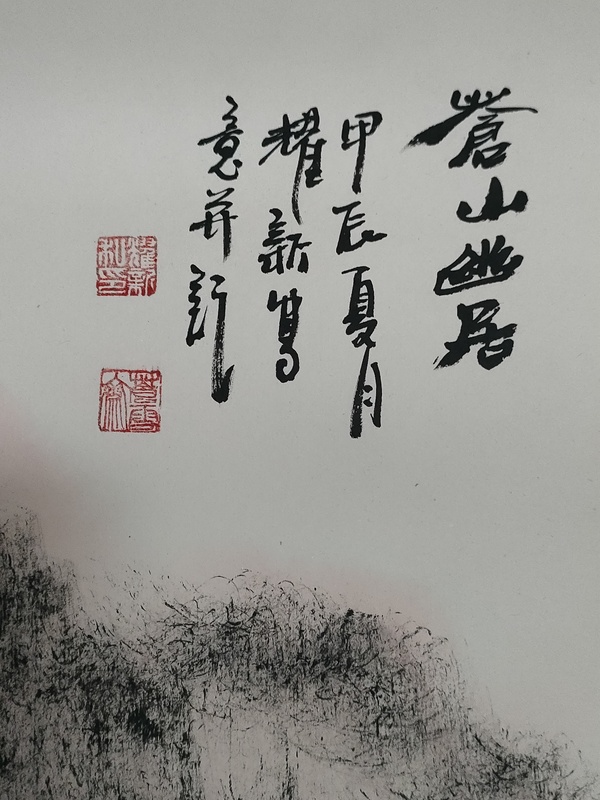 蒼山幽居
甲辰夏月
耀新写
意并记
耀新私印